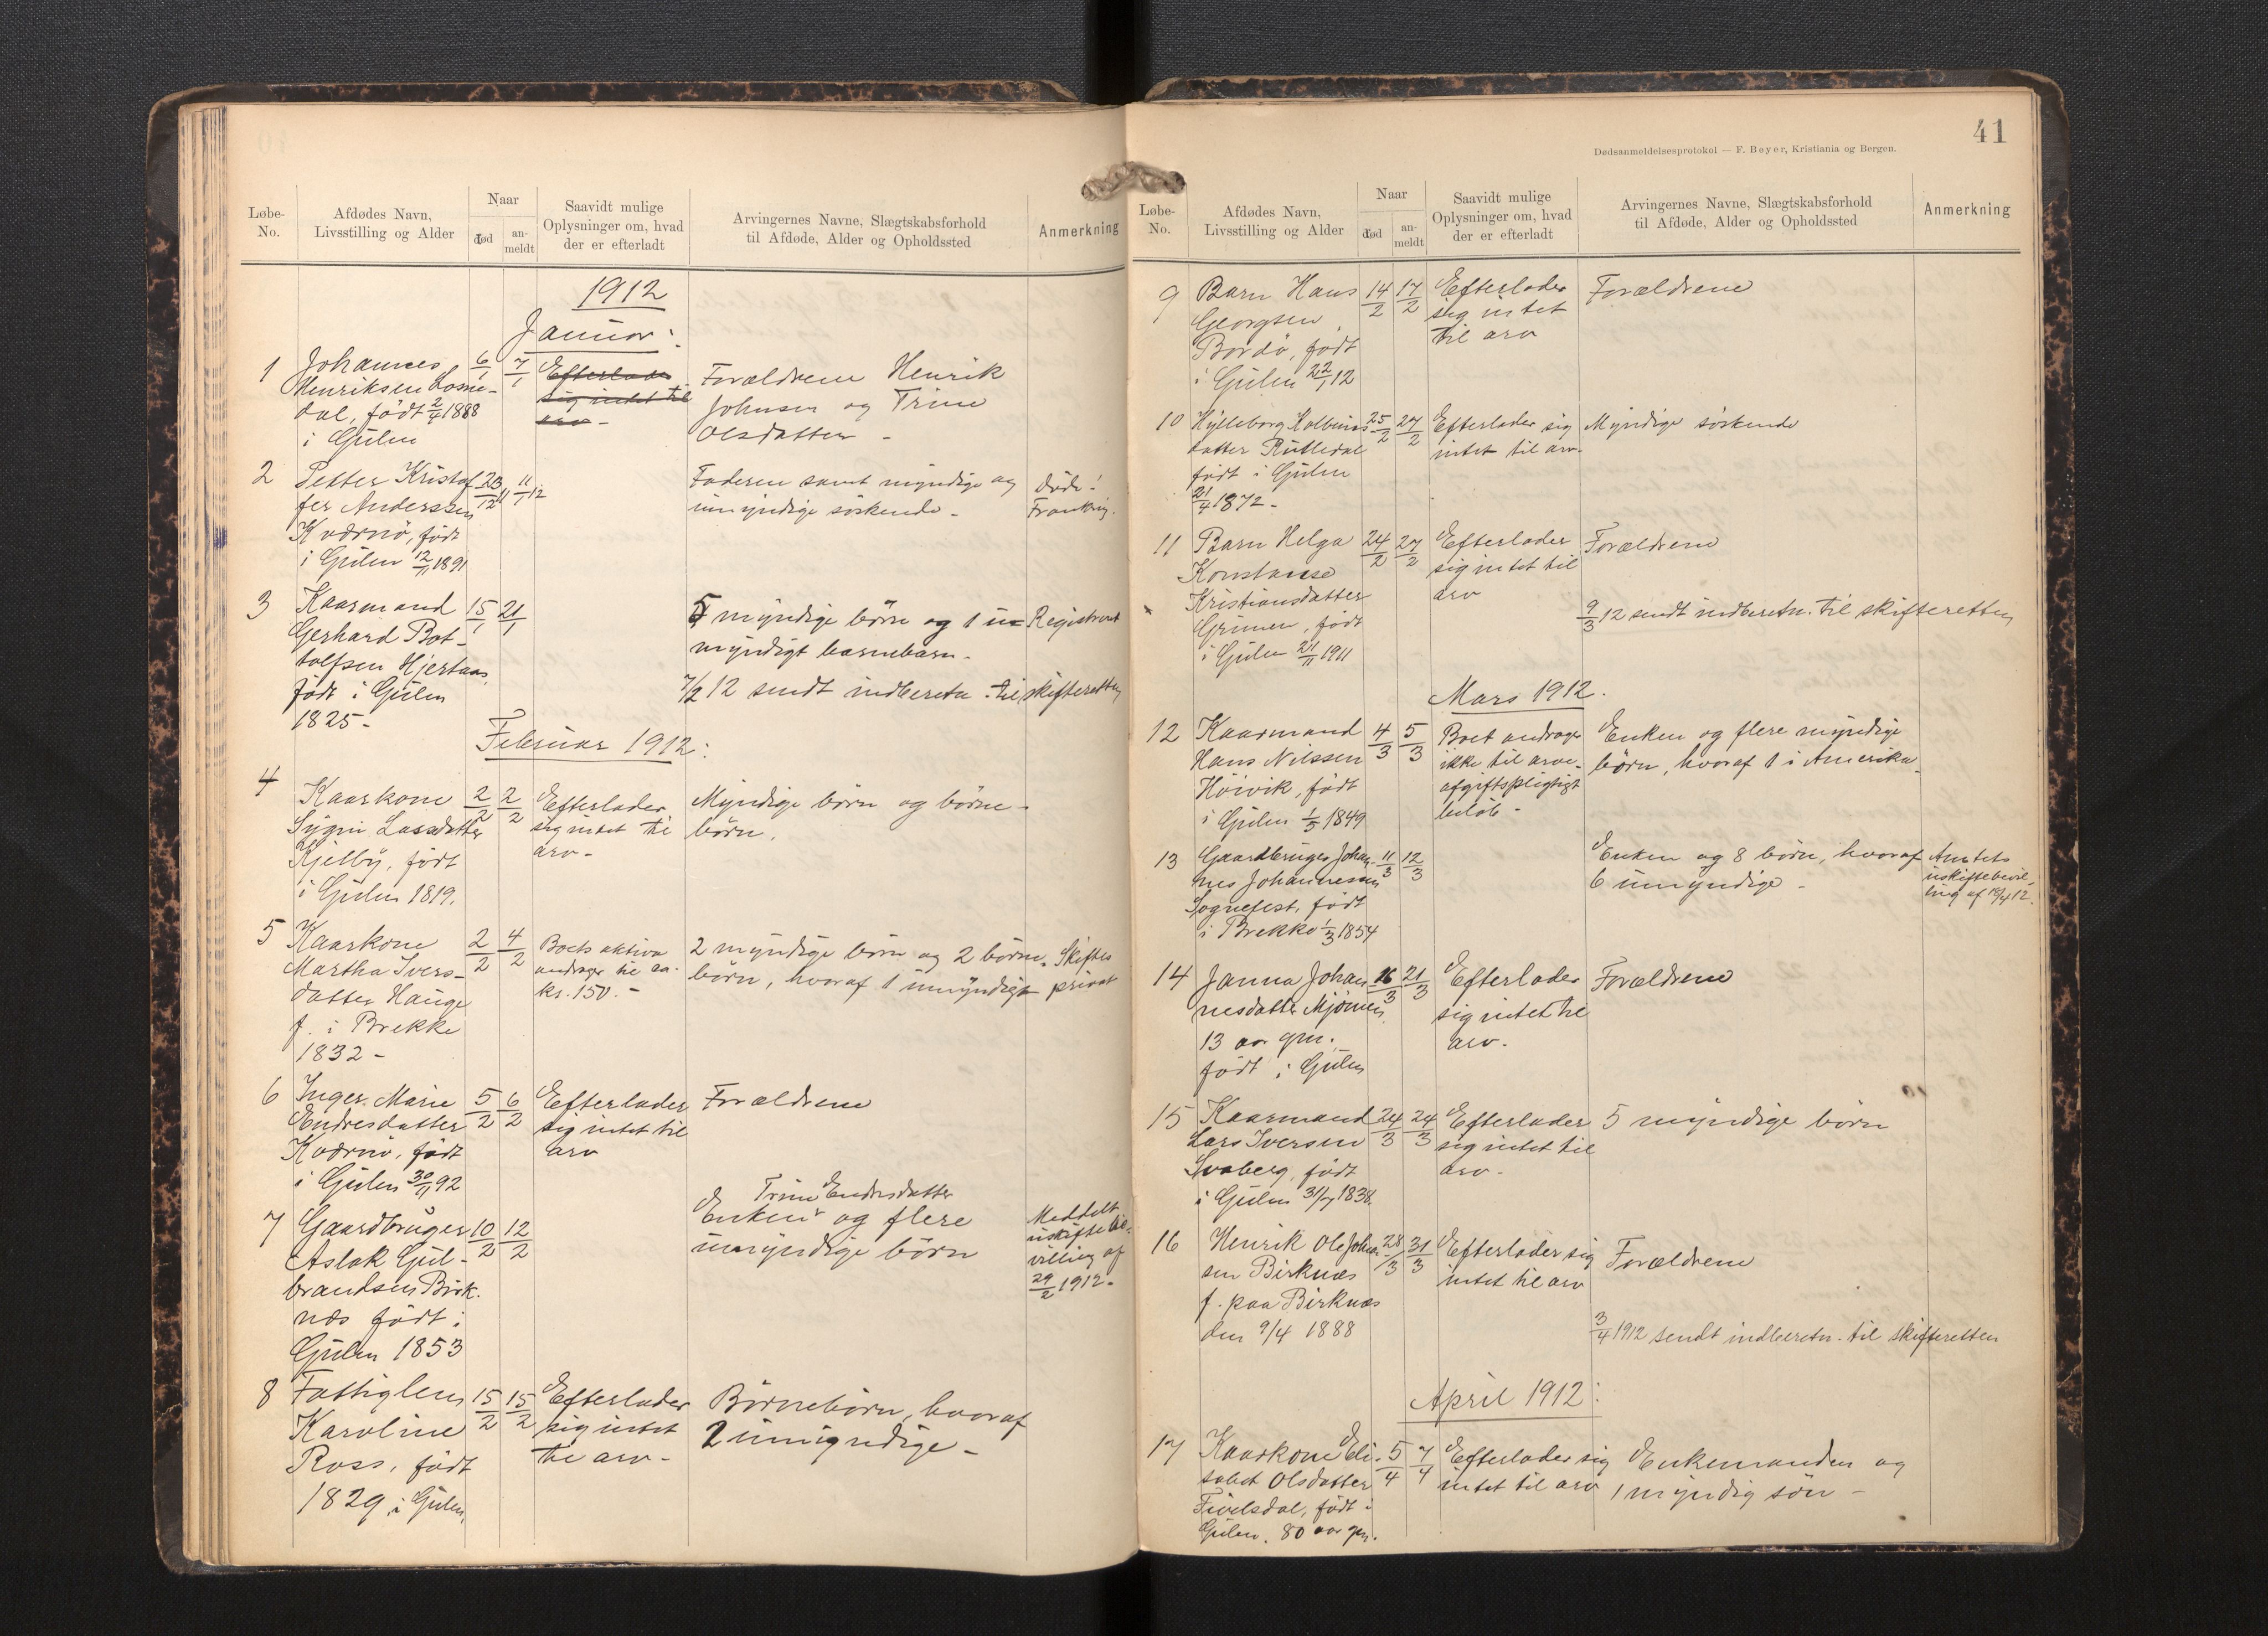 Løbe-
No.
Afdødes Navn,
Livsstilling og Alder
Naar
død
an-
meldt
Saavidt mulige
Oplysninger om, hvad
der er efterladt
Arvingernes Navne, Slægtskabsforhold
til Afdøde, Alder og Opholdssted
Anmerkning
1912
Januar:
1 Johannes 6/1 7/1 Efterlader
Henriksen
dal, født 2/4 1888 sig intet til
i Gulen arv -
Forældrene Henrik
Johnsen og Trine
Olsdatter -
2 Petter Kristof- 23/12 11 11/1 12
fer Anderssen
Kværnø, født
i Gulen 12/11 1891
Faderen samt myndige og
umyndige søskende -
døde!
3 Kaarmand 15/1 21/1
Gerhard Bot-
tolfsen Hjertaas,
født i Gulen
1825 -
5 myndige børn og 1 u= Registreret
myndigt barnebarn -
7/2 12 sendt indberetn. til skifteretten
Februar 1912:
4
Kaarkone 2/2 2/2 Efterlader Myndige børn og børne-
Sygni Lassedatter sig intet til børn.
Kjelby, født arv -
i Gulen 1819.
5 Kaarkone 2/2 4/2 Boets aktiva 2 myndige børn og 2 børne- Skiftes
Martha Ivers- andrager til ca. børn, hvoraf 1 umyndigt privat
datter Hauge kr. 150. -
f. i Brekke
1832 -
6 Inger Marie 5/2 6/2 Efterlader Forældrene
Endresdatter sig intet til
Kværnø, født arv
i Gulen 30/11 92
Trine Endresdatter
7 Gaardbruger 10/2 12/2 Enken og flere
Aslak Gul- umyndige børn
brandsen Birk-
næs født i
Gulen 1853
Meddelt
uskiftebe-
villing af
29/2 1912 -
8 Fattiglem 15/2 15/2 Efterlader Børnebørn, hvoraf
Karoline sig intet 2 umyndige -
Ross, født til arv -
1829 i Gulen,
41
Dødsanmeldelsesprotokol — F. Beyer, Kristiania og Bergen.
Løbe-
No.
Afdødes Navn,
Livsstilling og Alder
Naar
død
an-
meldt
Saavidt mulige
Oplysninger om, hvad
der er efterladt
Arvingernes Navne, Slægtskabsforhold
til Afdøde, Alder og Opholdssted
Anmerkning
9 Barn Hans 14/2 17/2 Efterlader Forældrene
Georgsen sig intet
Bordø, født til arv
i Gulen 22/1 12
10 Hylleborg Kolbeins- 25/2 27/2 Efterlader sig Myndige søskende
datter Rutledal intet til arv -
født i Gulen
21/4 1872 -
11 Barn Helga 24/2 27/2 Efterlader Forældrene
Konstanse sig intet til
Kristiansdatter arv
Grinen, født
i Gulen 21/11 1911
9/3 12 sendt indberetn. til skifteretten
Mars 1912.
12 Kaarmand 4/3 5/3 Boet andrager Enken og flere myndige
Hans Nilssen ikke til arve- børn, hvoraf 1 i Amerika -
Høivik, født afgiftspligtigt
i Gulen 1/5 1849 beløb -
13 Gaardbruger Johan- 11/3 12/3 Enken og 8 børn, hvoraf Amtets
nes Johannessen 6 umyndige - uskiftebevil-
Sognefest, født ling af 16/4 12.
i Brekke 1/3 1854
14 Janna Johan- 16/3 21/3 Efterlader Forældrene
nesdatter Mjømen, sig intet til
13 aar gm. arv -
født i Gulen
15 Kaarmand 24/3 24/3 Efterlader 5 myndige børn
Lars Iversen sig intet til
Svaberg, født arv -
i Gulen 31/7 1838.
16 Henrik Ole Johan- 28/3 31/3 Efterlader sig Forældrene
sen Birknæs intet til arv
f. paa Birknæs
den 9/4 1888
3/4 1912 sendt indberetn. til skifteretten
April 1912:
17 Kaarkone Eli- 5/4 7/4 Efterlader sig Enkemanden og
sabet Olsdatter intet til arv 1 myndig søn -
Tivelsdal, født i
Gulen. 80 aar gm.